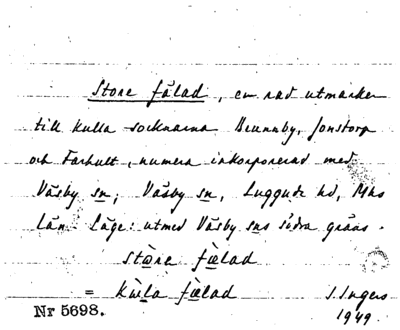 Store fälad, en rad utmarker
till Kulla socknarna Brunnby, Jonstorp
och Farhult, numera inkorporerad med
Väsby sn; Väsby sn, Luggude hd, Mhs
län. Läge: utmed Väsby sns södra gräns.
stòre fœlad
= Kùlla fœlad S. Ingers
Nr 5698. 1949.